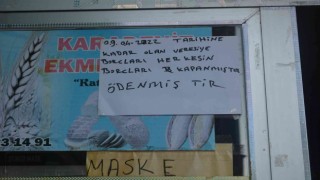 KAR
EKME
"Kat
09.04.2022 TARİHİNE
KADAR OLAN VERESİYE
BORÇLARI HERKESİN
BORÇLARI KAPANMIŞTIR
ÖDENMİŞ TİR
3 14 91
MASKE